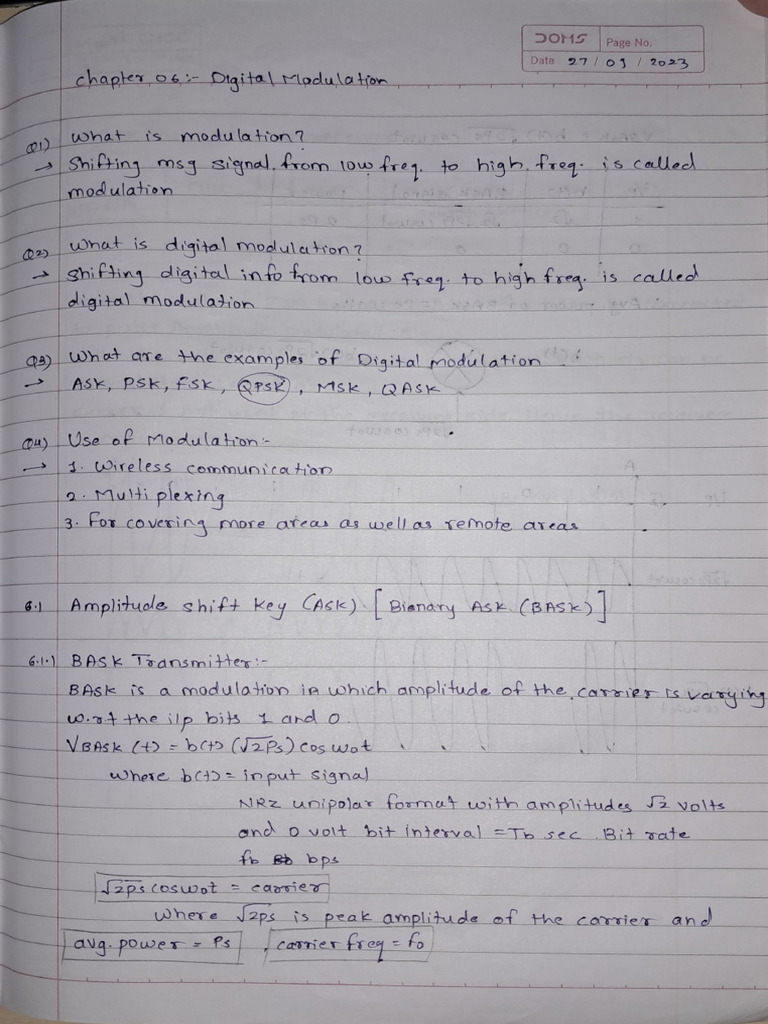 DOMS Page No.
Date 27 / 09 / 2023
chapter 06:- Digital Modulation
Q1) What is modulation?
→ Shifting msg signal from low freq. to high freq. is called
modulation
Q2) What is digital modulation?
→ shifting digital info from low freq. to high freq. is called
digital modulation
Q3) What are the examples of Digital modulation
→ ASK, PSK, FSK, QPSK, MSK, QASK
Q4) Use of Modulation:-
→ 1. Wireless communication
2. Multiplexing
3. For covering more areas as well as remote areas
6.1 Amplitude shift key (ASK) [Bianary ASK (BASK)]
6.1.1 BASK Transmitter:-
BASK is a modulation in which amplitude of the carrier is varying
w.r.t the i/p bits 1 and 0.
VBASK (t) = b(t) (√2Ps) cos w0t
where b(t) = input signal
NRZ unipolar format with amplitudes √2 volts
and 0 volt bit interval = Tb sec. Bit rate
fb bps
√2ps cos w0t = carrier
where √2ps is peak amplitude of the carrier and
avg. power = Ps , carrier freq = fo